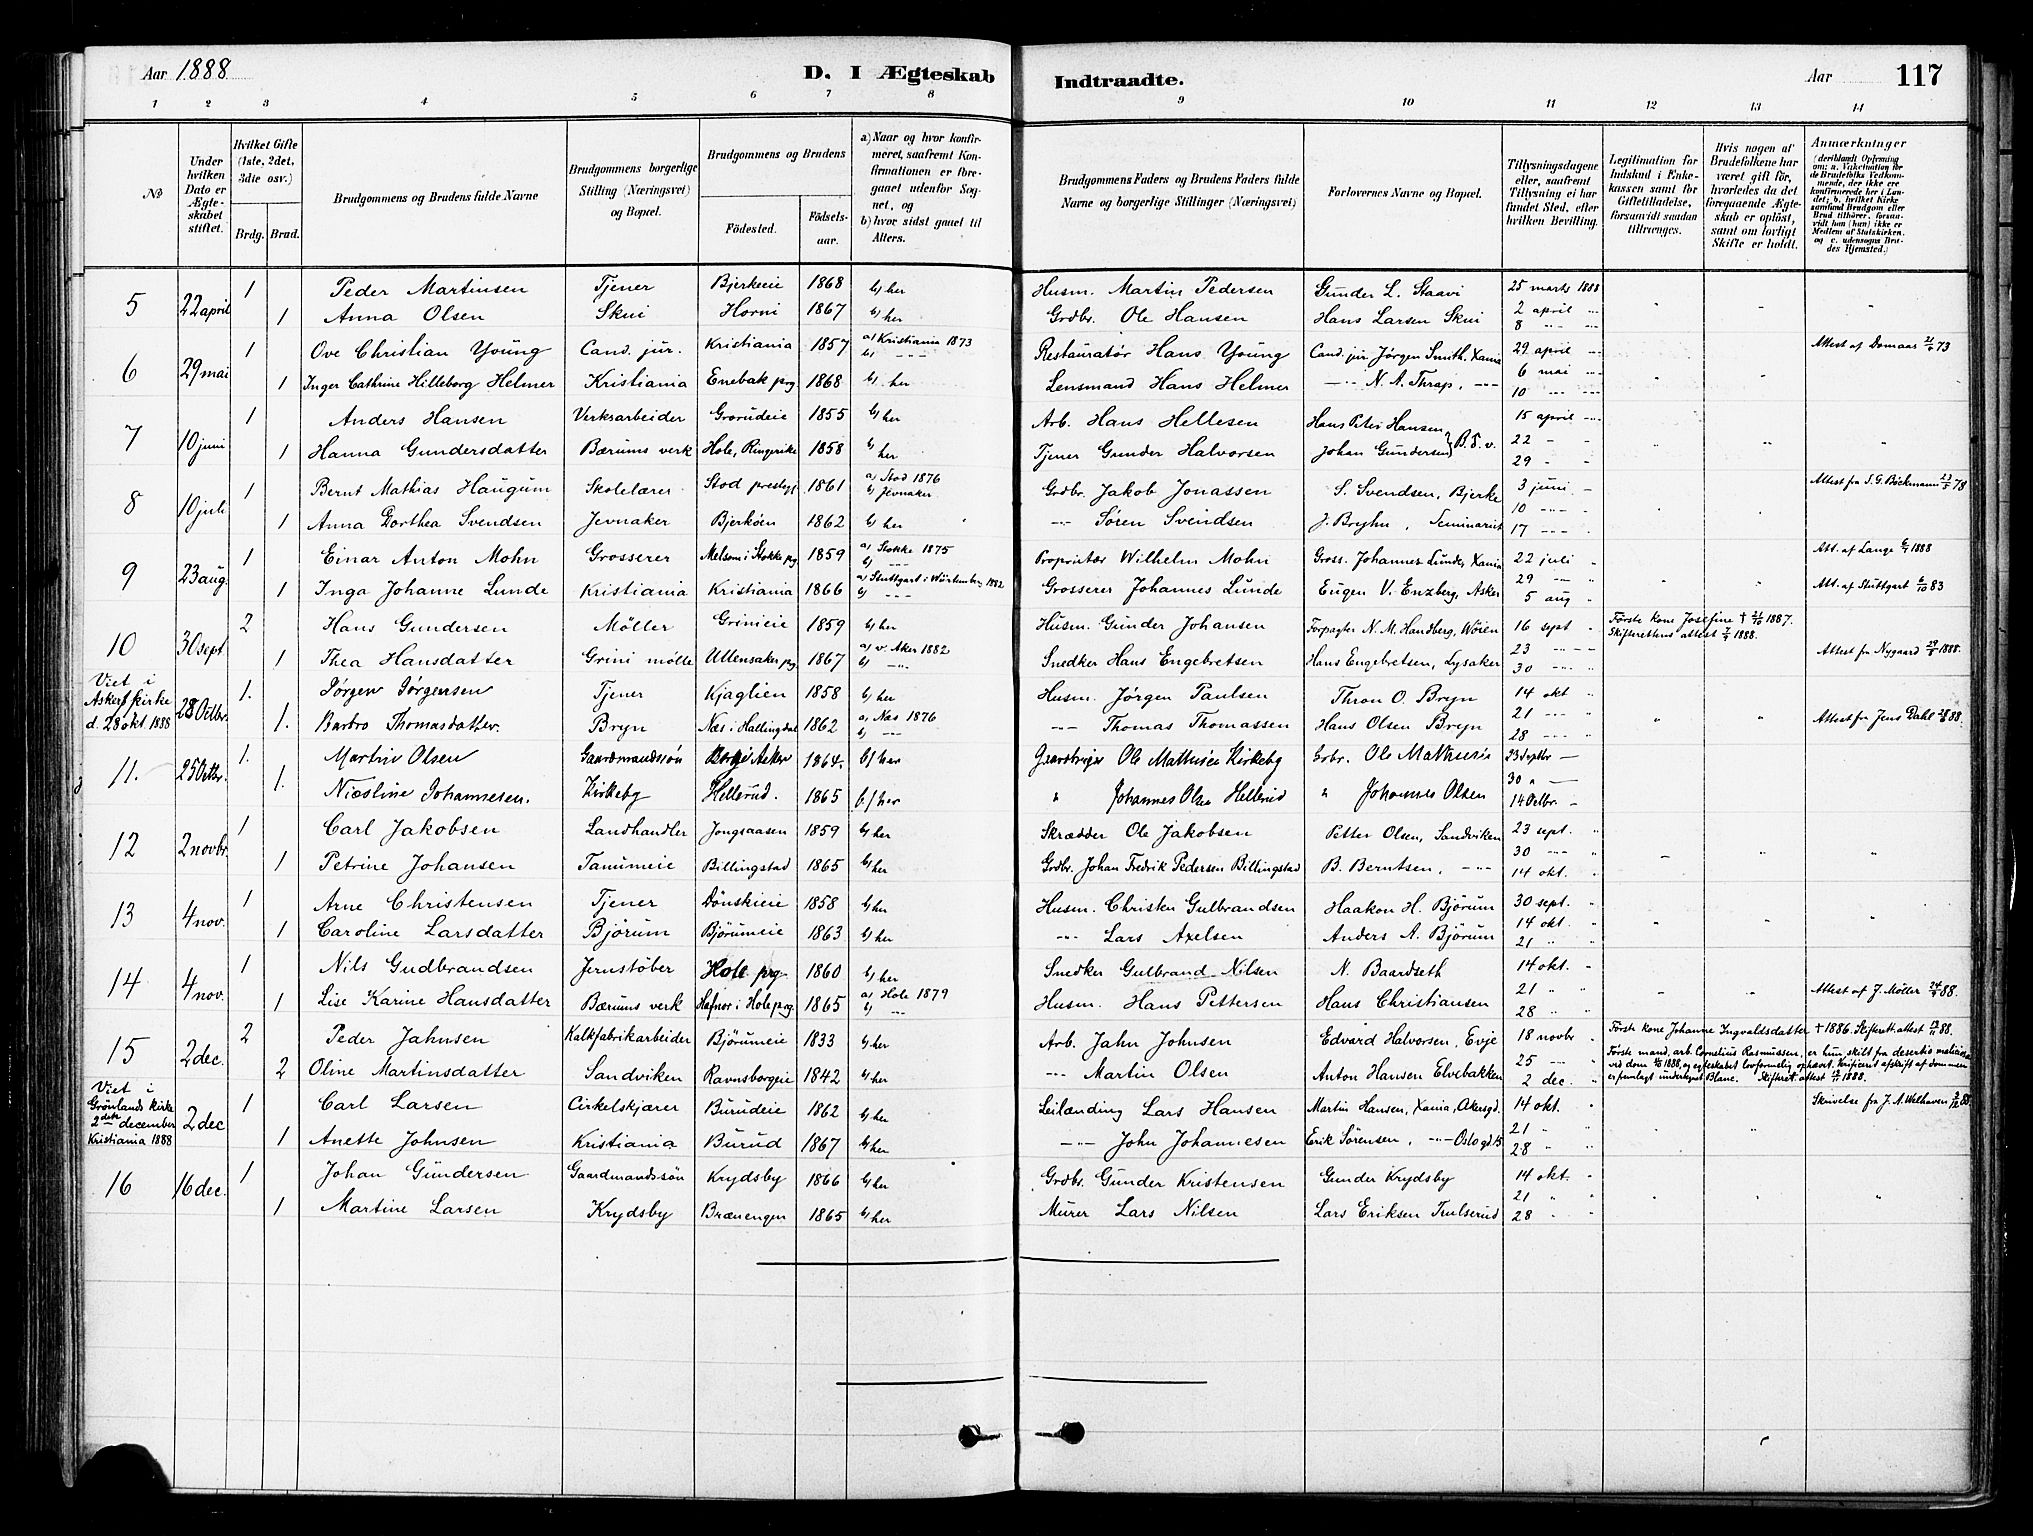 Aar 1888
D. I Ægteskab
Indtraadte.
Aar
117
1 2 3 4 5 6 7 8 9 10 11 12 13 14
No
Under hvilken Dato er Ægteskabet stiftet.
Hvilket Gifte (1ste, 2det, 3die osv.)
Brdg. Brud.
Brudgommens og Brudens fulde Navne
Brudgommens borgerlige Stilling (Næringsvei) og Bopæl.
Brudgommens og Brudens
Fødested. Fødselsaar.
a) Naar og hvor konfirmeret, saafremt Konfirmationen er foregaaet udenfor Sognet, og
b) hvor sidst gaaet til Alters.
Brudgommens Faders og Brudens Faders fulde Navne og borgerlige Stillinger (Næringsvei)
Forlovernes Navne og Bopæl.
Tillysningsdagene eller, saafremt Tillysning ei har fundet Sted, efter hvilken Bevilling.
Legitimation for Indskud i Enkekassen samt for Giftetilladelse, forsaavidt saadan tiltrænges.
Hvis nogen af Brudefolkene har været gift før, hvorledes da det foregaaende Ægteskab er opløst, samt om lovligt Skifte er holdt.
Anmærkninger
(deriblandt Opførsel om: a. Vakcination for de Brudefolks Vedkommende, der ikke ere konfirmerede her i Landet; b. hvilket Kirkesamfund Brudgom eller Brud tilhører, forsaavidt han (hun) ikke er Medlem af Statskirken, og c. udensogns Brudes Hjemsted.)
5 22 april 1 Peder Martinsen Tjener Bjerkeeie 1868 b) her Husm. Martin Pedersen Gunder L. Staavi 25 marts 1888
1 Anna Olsen Skui Horni 1867 b) her Grdbr. Ole Hansen Hans Larsen Skui 2 april
8
6 29 mai 1 Ove Christian Young Cand. jur. Kristiania 1857 a) Kristiania 1873 b) Restauratør Hans Young Cand. jur. Jørgen Smith. Xania 29 april Attest af Domaas 73
1 Inger Cathrine Hilleborg Helmer Kristiania Enebak prg 1868 b) her Lensmand Hans Helmer N. A. Thrap, 6 mai
10
7 10 juni 1 Anders Hansen Verksarbeider Grorudeie 1855 b) her Arb. Hans Hellesen Hans Peter Hansen 15 april
1 Hanna Gundersdatter Bærums verk Hole, Ringerike 1858 b) her Tjener Gunder Halvorsen Johan Gundersen B. v. 22
29
8 10 juli 1 Bernt Mathias Haugum Skolelærer Stod prestegj 1861 a) Stod 1876 b) Jevnaker Grdbr. Jakob Jonassen S. Svendsen, Bjerke 3 juni Attest fra S. G. Bøckmann 78
1 Anna Dorthea Svendsen Jevnaker Bjerkøen 1862 b) her Søren Svendsen J. Bryhn, Seminarist 10
17
9 23 aug. 1 Einar Anton Mohn Grosserer Melsom i Stokke prg 1859 a) Stokke 1875 b) Proprietær Wilhelm Mohn Gross. Johannes Lunde, Xania 22 juli Att. af Lange 1888
1 Inga Johanne Lunde Kristiania Kristiania 1866 a) Stuttgart i Würtemberg 1882 b) Grosserer Johannes Lunde Eugen V. Enzberg, Asker 29 Att. af Stuttgart 6/10 83
5 aug
10 30 sept 2 Hans Gundersen Møller Grinieie 1859 b) her Husm. Gunder Johansen Forpagter N. M. Handberg, Wøien 16 sept Første kone Josefine † 1887. Skifterettens attest 1888.
1 Thea Hansdatter Grini mølle Ullensaker prg 1867 a) v. Aker 1882 b) Snedker Hans Engebretsen Hans Engebretsen, Lysaker 23 Attest fra Nygaard 1888.
30
Viet i Askers kirke d. 28 okt 1888 28 Octbr. 1. Jørgen Jørgensen Tjener Kjaglien 1858 b) her Husm. Jørgen Paulsen Thron O. Bryn 14 okt
1. Barbro Thomasdatter. Bryn Næs i Hallingdal 1862 a) Næs 1876 b) Thomas Thomassen Hans Olsen Bryn 21 Attest fra Jens Dahl 88.
28
11. 25 Octbr. 1. Martin Olsen Gaardmandssøn 1864. b) her Gaardbruger Ole Mathisen Kirkeby Grbr. Ole Mathisen 23 Septbr
1. Nicoline Johannesen. Kirkeby Hellerud. 1865 b) her Johannes Olsen Hellerud Johannes Olsen 30
14 Octbr.
12 2 novbr. 1 Carl Jakobsen Landhandler Jongsaasen 1859 b) her Skrædder Ole Jakobsen Petter Olsen, Sandviken 23 sept.
1 Petrine Johansen Tanumeie Billingstad 1865 b) her Grdbr. Johan Fredrik Pedersen Billingstad B. Berntsen, 30
14 okt.
13 4 nov. 1 Arne Christensen Tjener Dønskieie 1858 b) her Husm. Christen Gulbrandsen Haakon H. Bjørum 30 sept.
1 Caroline Larsdatter Bjørum Bjørumeie 1863 b) her Lars Axelsen Anders A. Bjørum 14 okt.
21
14 4 nov. 1 Nils Gudbrandsen Jernstøber Hole prg. 1860 b) her Snedker Gulbrand Nilsen N. Baardseth 14 okt.
1 Lise Karine Hansdatter Bærums verk Hafnor i Hole prg. 1865 a) Hole 1879 b) Husm. Hans Pettersen Hans Christiansen 21 Attest af J. Møller 88.
28
15 2 dec. 2 Peder Jahnsen Kalkfabrikarbeider Bjørumeie 1833 b) her Arb. Jahn Johnsen Edvard Halvorsen, Evje 18 novbr Første kone Johanne Ingvaldsdatter † 1886. Skifteret. attest 88.
2 Oline Martinsdatter Sandviken Ravnsborgeie 1842 b) her Martin Olsen Anton Hansen Elvebakken 25 Første mand, arb. Cornelius Rasmussen, er hun skilt fra desertio malitiosa
2 dec. ved dom 1888, og egteskabet lovformelig ophævet. Verificeret afskrift af dommen er fremlagt underlagt Blane. Skifteret. attest 1888.
Viet i Grønlands kirke 2den december Kristiania 1888 2 dec 1 Carl Larsen Cirkelskjærer Burudeie 1862 b) her Leilænding Lars Hansen Martin Hansen, Xania, Akersgd. 14 okt. Skrivelse fra J. A. Welhaven 88
1 Anette Johnsen Kristiania Burud 1867 b) her John Johannesen Erik Sørensen, Oslo gd 13 21
28
16 16 dec. 1 Johan Gundersen Gaardmandssøn Krydsby 1866 b) her Grdbr. Gunder Kristensen Gunder Krydsby 14 okt.
1 Martine Larsen Krydsby Brænengen 1865 b) her Murer Lars Nilsen Lars Eriksen Tulserud 21
28